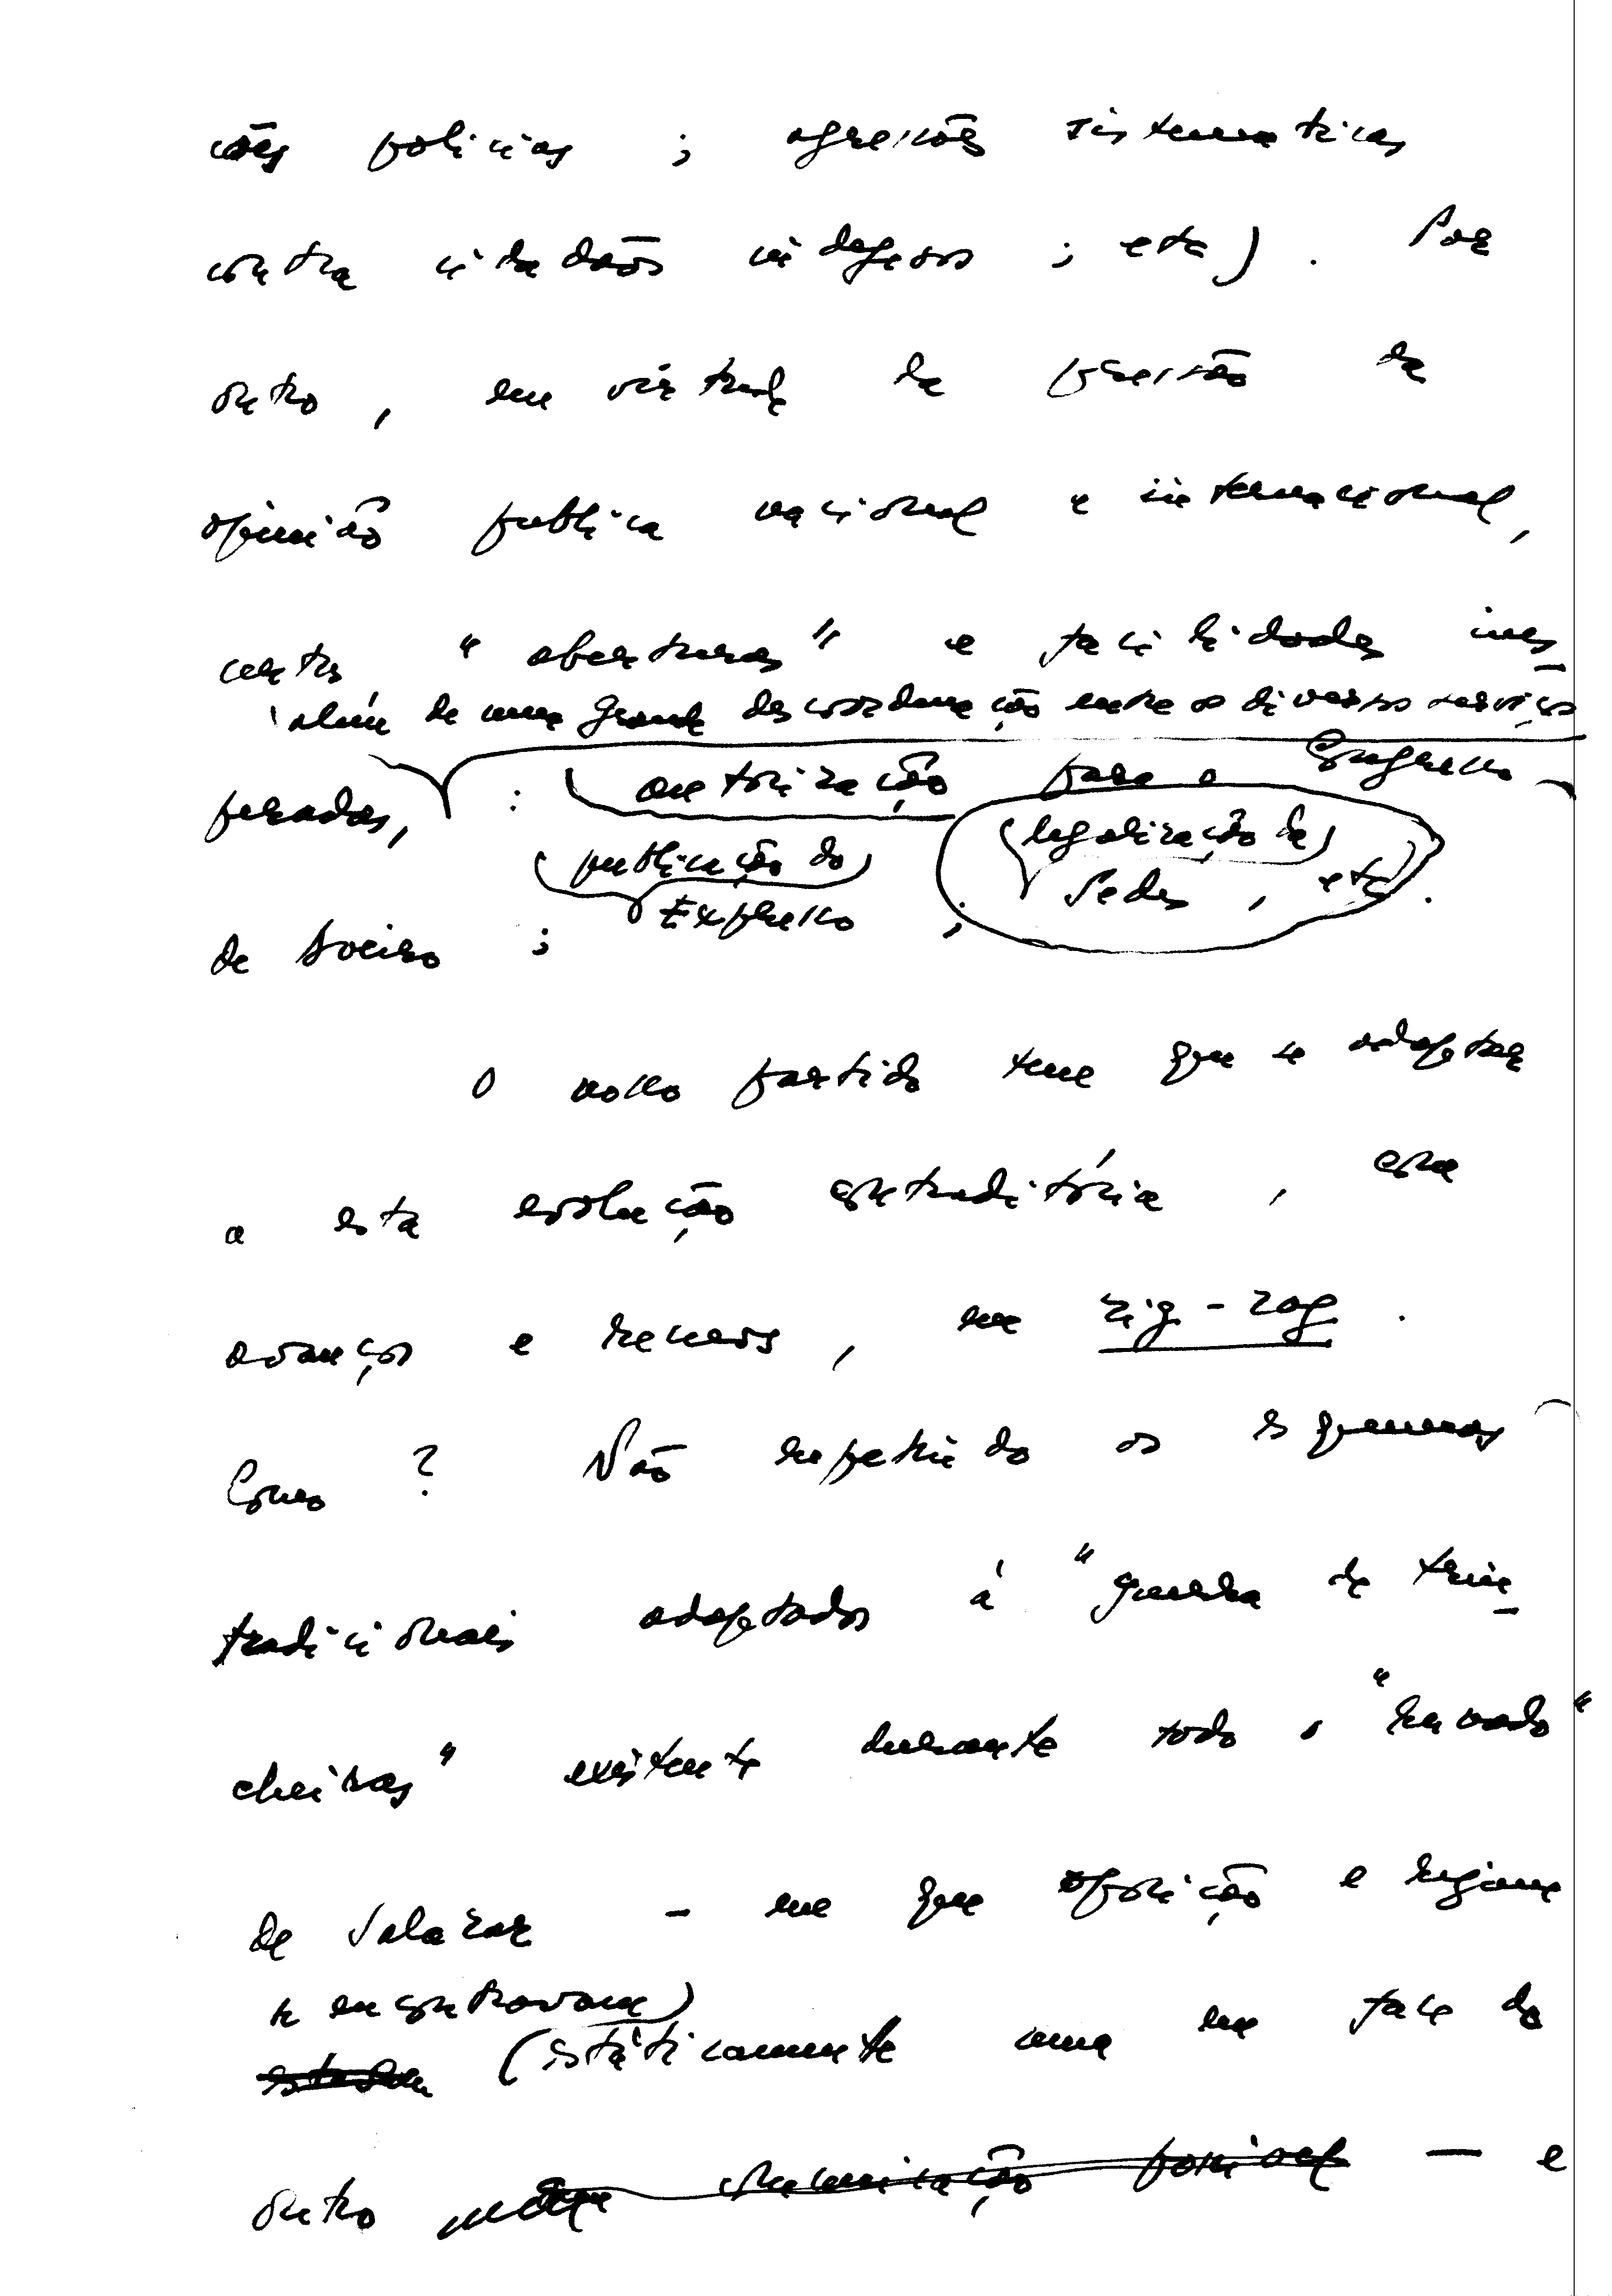 ções policias ; agressões sistematicas
contra cidadãos indefesos ; etc) . Por
outro , em virtude da pressão da
opinião publica nacional e internacional,
certas "aberturas" e facilidades ines-
além de uma grande descoordenação entre os diversos serviços
peradas, : autorização para o Congresso
(legalização da)
(publicação do) Sedes , etc .
Expresso ;
de Aveiro ;
O nosso partido tem que se adaptar
a esta evolução contraditória , com
avanços e recuos , em zig-zag .
Como ? Não repetindo os esquemas
tradicionais adaptados à "guerra de trin-
cheiras" existente durante todo o "reinado"
de Salazar - em que oposição e regime
se encontravam)
(estáticamente uma em face do
outro comunicação possivel — e